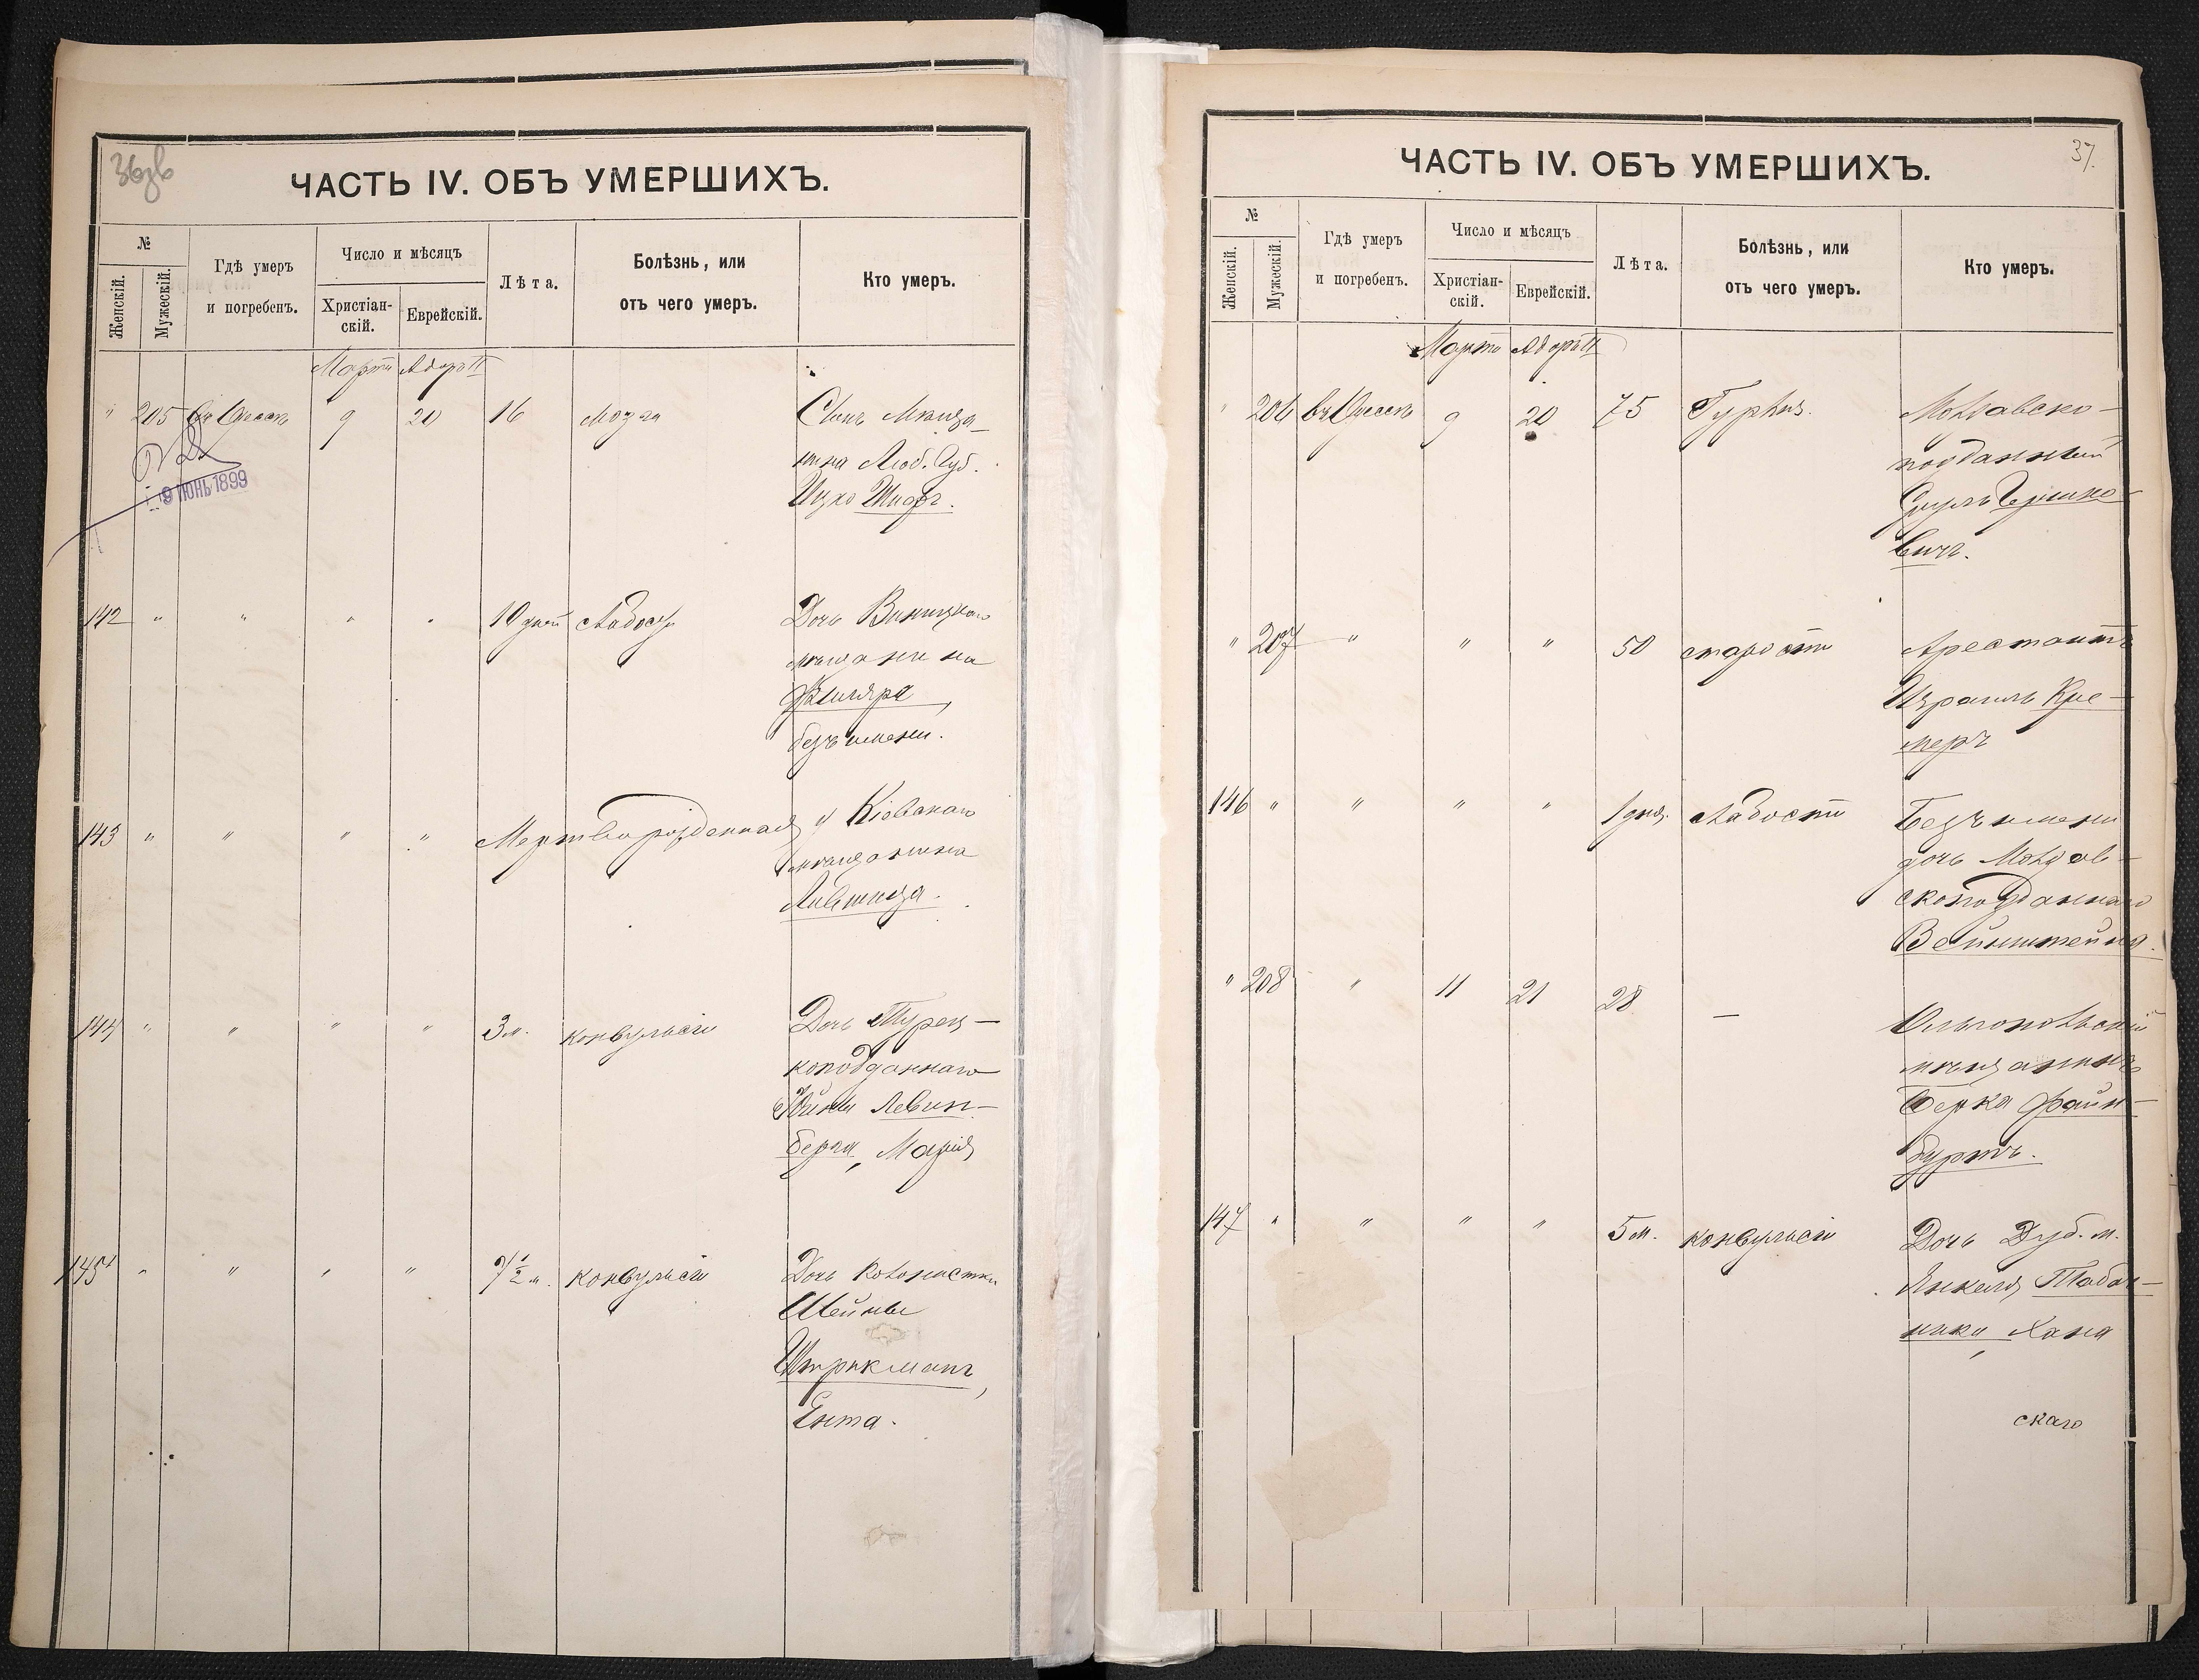 36зв
ЧАСТЬ IV. ОБЪ УМЕРШИХЪ.
№
Женскій.
Мужескій.
Гдѣ умеръ
и погребенъ.
Число и мѣсяцъ
Христіан-
скій.
Еврейскій.
Лѣта.
Болѣзнь, или
отъ чего умеръ.
Кто умеръ.
Мартъ Адаръ II
" 205 Въ Одессѣ 9 20 16 Сынъ Мѣща-
нина Люб. Губ.
Ицхо
9 ІЮНЬ 1899
142 " " " " 10 дней слабость Дочь Виницкаго
мѣщанина
безъ имени.
143 " " " " Мертворожденная у Кіевскаго
мѣщанина
Лившица.
144 " " " " 3 м. конвульсіи Дочь Турец-
коподданнаго
Левин-
берга, Марія
145 " " " " 7½ м. конвульсіи Дочь колонистки
Шейны
Штрикманъ,
Ента.
37.
ЧАСТЬ IV. ОБЪ УМЕРШИХЪ.
№
Женскій.
Мужескій.
Гдѣ умеръ
и погребенъ.
Число и мѣсяцъ
Христіан-
скій.
Еврейскій.
Лѣта.
Болѣзнь, или
отъ чего умеръ.
Кто умеръ.
Мартъ Адаръ II
" 206 Въ Одессѣ 9 20 75 Typhus. Молдавско-
подданный
Сруль Гершко-
вичъ.
" 207 " " " 50 старости Арестантъ
Израиль Кре-
меръ
146 " " " " 1 дня. слабости Безъ имени
дочь Молдав-
скоподданнаго
Вайнштейна.
" 208 " 11 21 28 — Ольгопольскій
мѣщанинъ
Берка Файн-
буртъ.
147 " " " " 5 м. конвульсіи Дочь Дуб. м.
Янкеля Табач-
ника, Хана
скаго